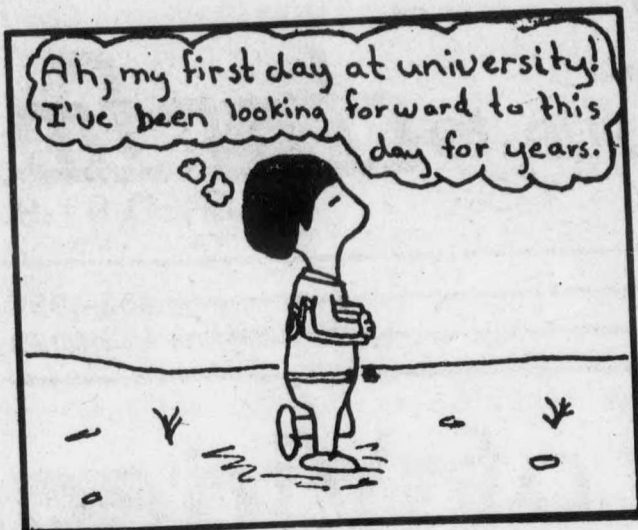 Ah, my first day at university!
I've been looking forward to this
day for years.